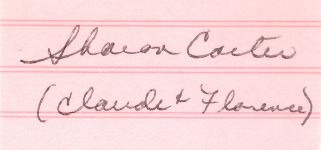 Sharon Carter
(Claude & Florence)